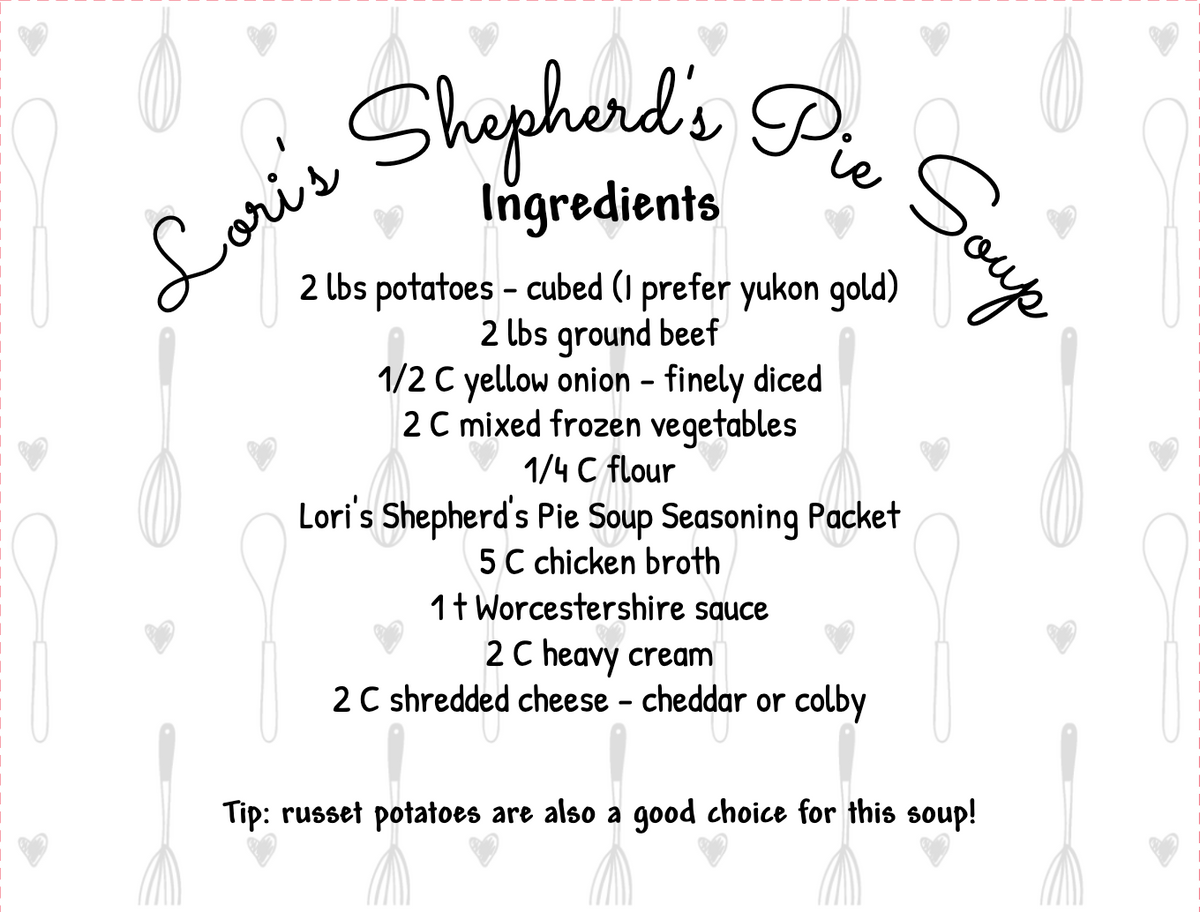 Lori's Shepherd's Pie Soup
Ingredients
2 lbs potatoes - cubed (I prefer yukon gold)
2 lbs ground beef
1/2 C yellow onion - finely diced
2 C mixed frozen vegetables
1/4 C flour
Lori's Shepherd's Pie Soup Seasoning Packet
5 C chicken broth
1 t Worcestershire sauce
2 C heavy cream
2 C shredded cheese - cheddar or colby
Tip: russet potatoes are also a good choice for this soup!